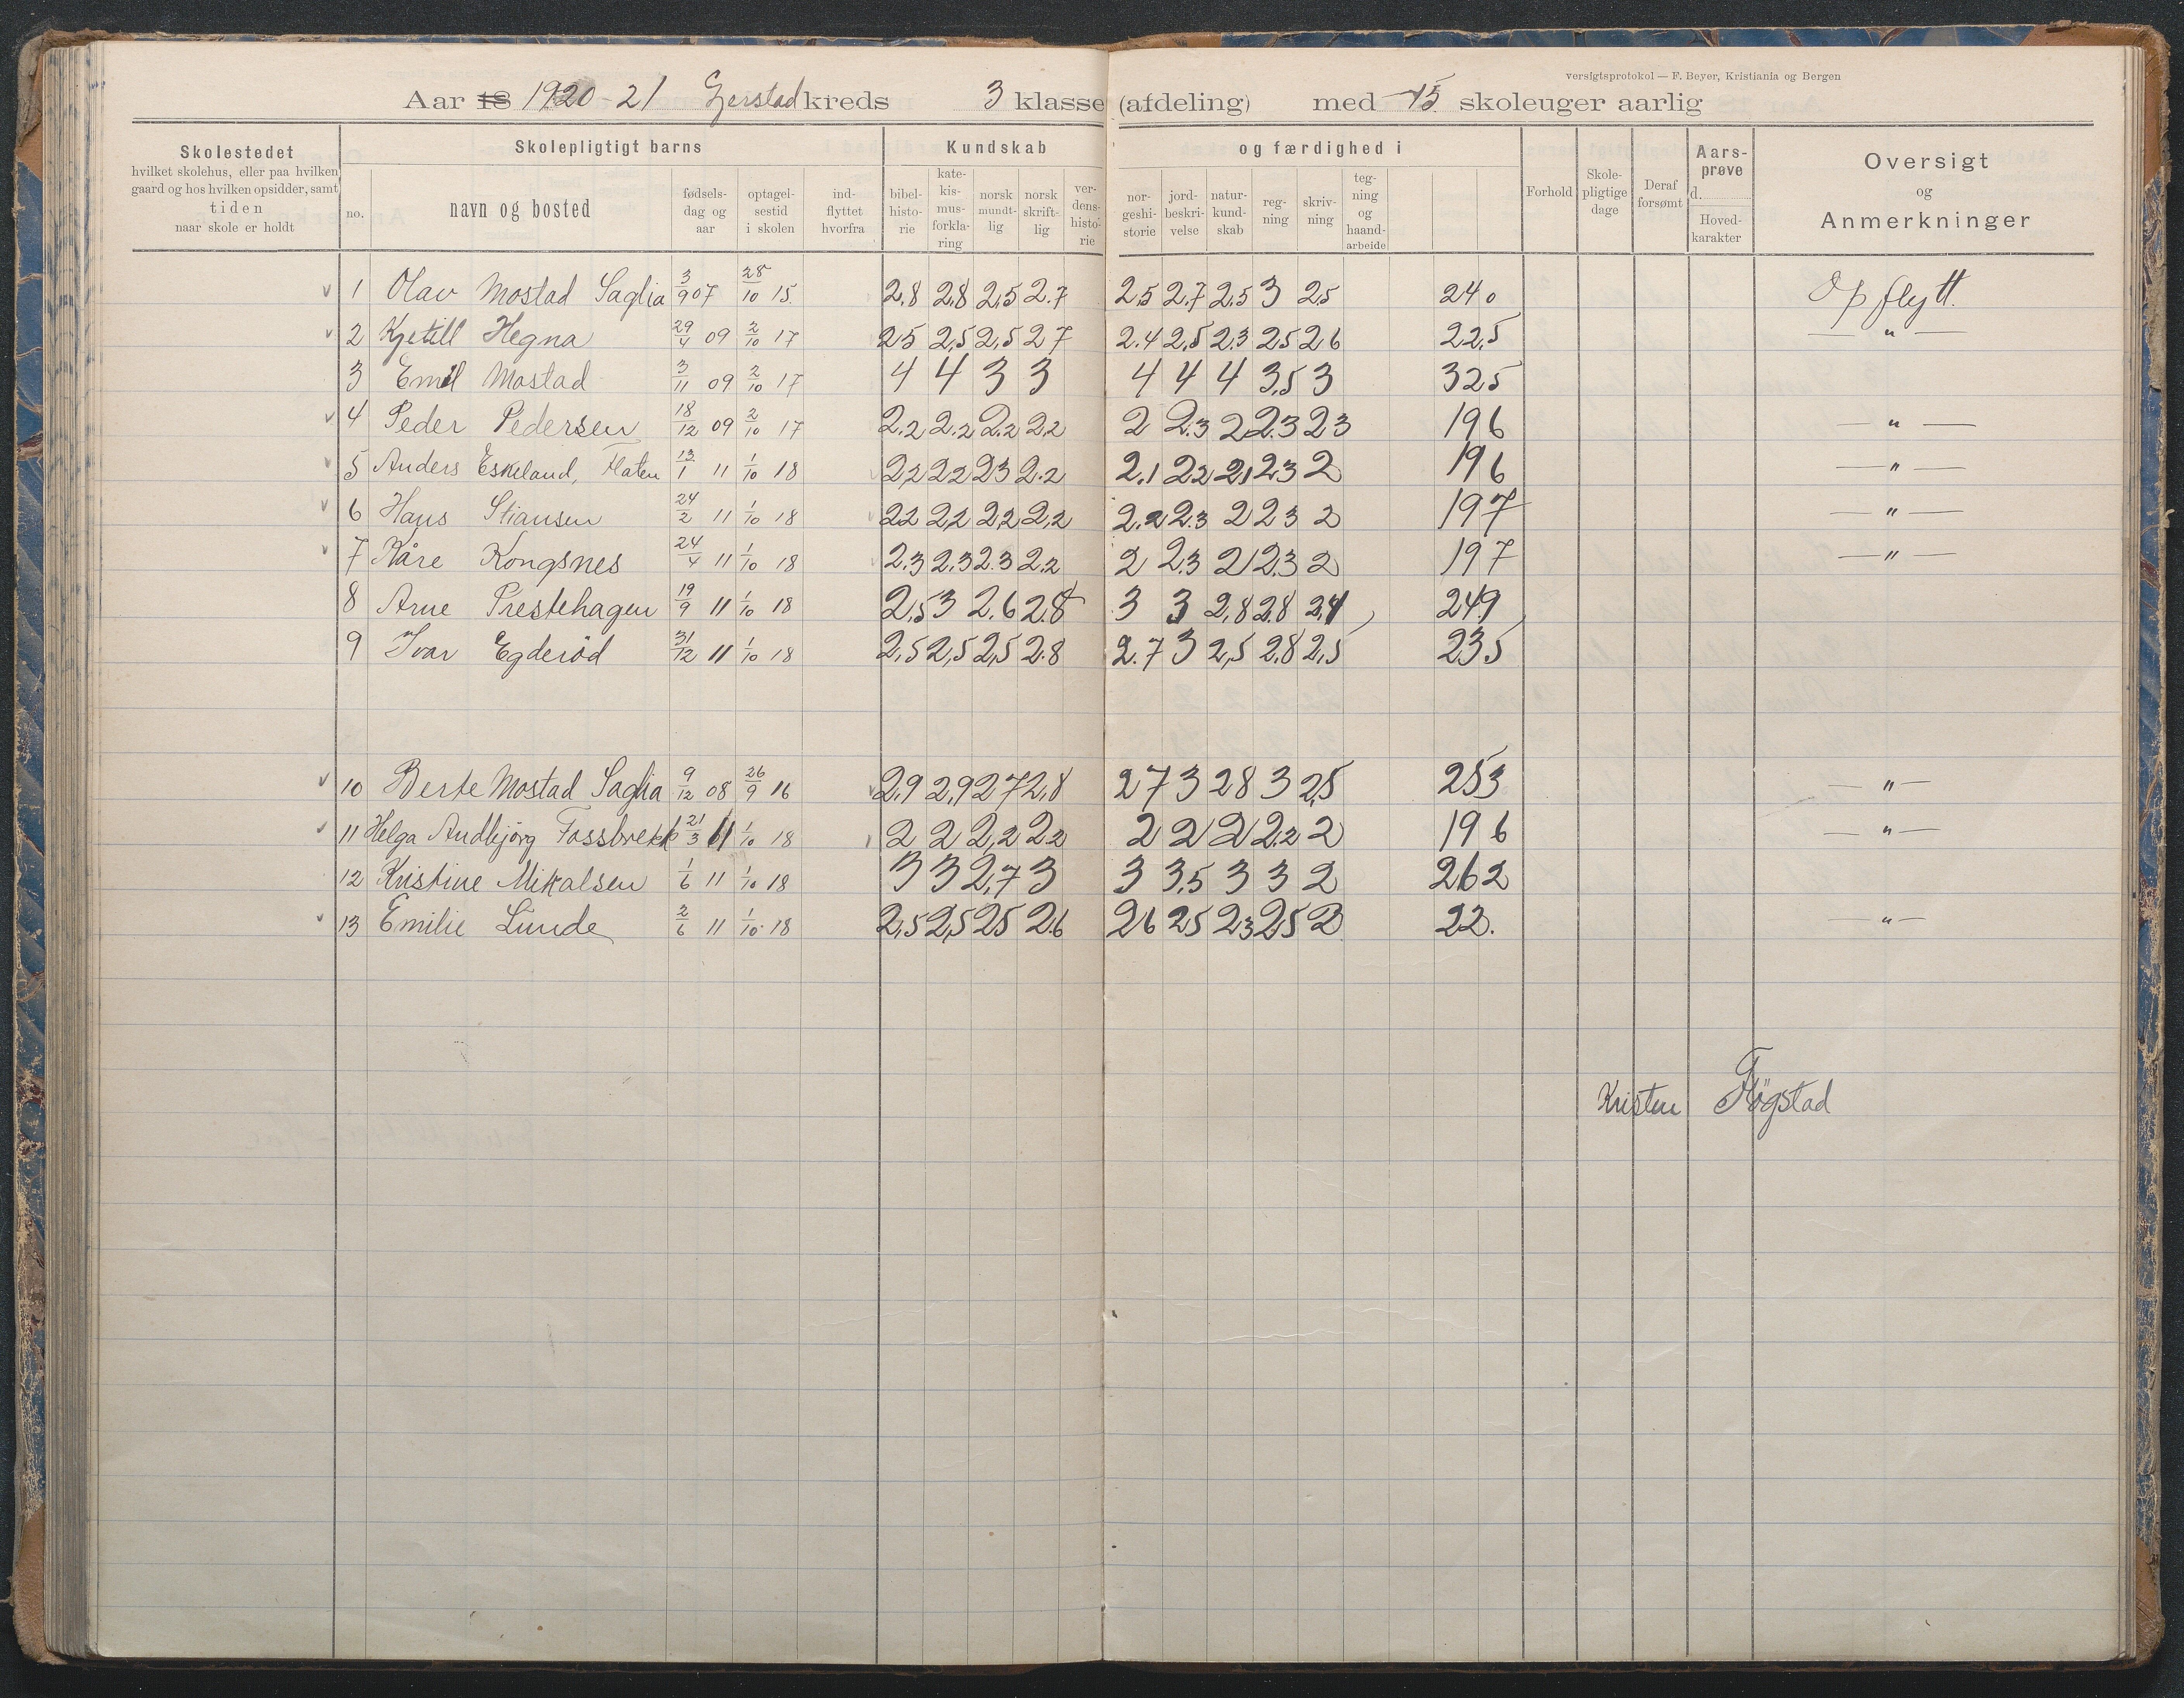 versigtsprotokol — F. Beyer, Kristiania og Bergen
Aar 18 1920-21 Gjerstad kreds 3 klasse (afdeling) med 15 skoleuger aarlig
Skolestedet hvilket skolehus, eller paa hvilken gaard og hos hvilken opsidder, samt tiden naar skole er holdt
Skolepligtigt barns
no. navn og bosted fødsels-dag og aar optagel-sestid i skolen ind-flyttet hvorfra
Kundskab og færdighed i
bibel-histo-rie kate-kis-mus-forkla-ring norsk mundt-lig norsk skrift-lig ver-dens-histo-rie nor-geshi-storie jord-beskri-velse natur-kund-skab reg-ning skriv-ning teg-ning og haand-arbeide
Forhold Skole-pligtige dage Deraf forsømt Aars-prøve d. Hoved-karakter
Oversigt og Anmerkninger
1 Olav Mostad Saglia 3/9 07 28/10 15 2,8 2,8 2,5 2.7 2,5 2,7 2,5 3 2,5 240 Opflytt.
2 Kjetill Hegna 29/4 09 2/10 17 25 2,5 2,5 27 2.4 2,5 2,3 25 26 22,5 — " —
3 Emil Mostad 3/11 09 2/10 17 4 4 3 3 4 4 4 3,5 3 325
4 Peder Pedersen 18/12 09 2/10 17 2.2 2.2 2.2 2,2 2 2.3 2 2.3 23 196 — " —
5 Anders Eskeland, Flaten 13/1 11 1/10 18 22 22 23 2.2 2.1 22 2,1 23 2 196 — " —
6 Hans Stiansen 24/2 11 1/10 18 22 22 22 22 2.2 2.3 2 23 2 197 — " —
7 Kåre Kongsnes 24/4 11 1/10 18 2.3 2.3 2.3 2.2 2 2.3 21 23 2 197 — " —
8 Arne Prestehagen 19/9 11 1/10 18 2,5 3 2.6 2.8 3 3 2,8 2.8 2,4 249
9 Ivar Egderöd 31/12 11 1/10 18 2,5 2,5 2,5 2.8 2.7 3 2,5 2.8 2,5 235
10 Berte Mostad Saglia 9/12 08 26/9 16 2.9 2,9 27 2,8 27 3 28 3 2,5 253 — " —
11 Helga Andbjörg Fossbrekk 21/3 11 1/10 18 2 2 2,2 2.2 2 2 2 2.2 2 196 — " —
12 Kristine Mikalsen 1/6 11 1/10 18 3 3 2,7 3 3 3,5 3 3 2 262
13 Emilie Lunde 2/6 11 1/10 18 2,5 2,5 25 2.6 26 25 23 25 2 22. — " —
Kristen Fögstad